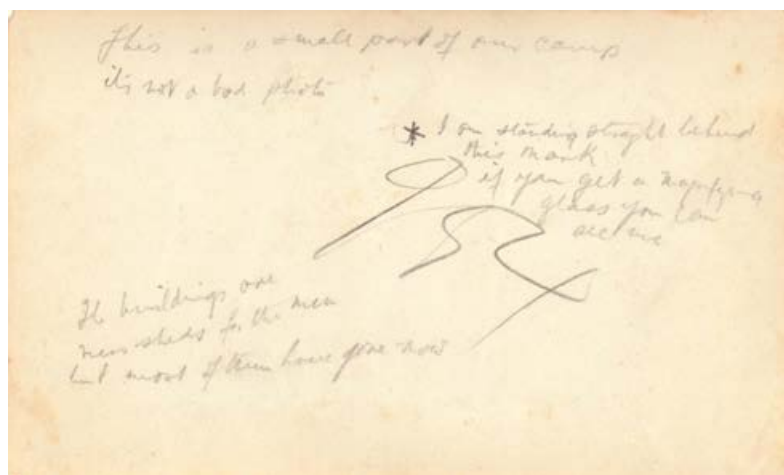 This is a small part of our camp
it's not a bad photo
* I am standing straight behind
this mark
if you get a magnifying
glass you can
see me
The buildings are
mess sheds for the men
but most of them have gone now